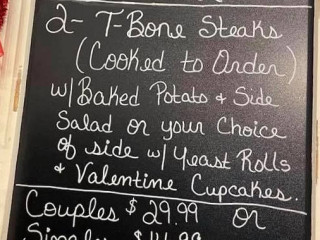 2- T-Bone Steaks
(Cooked to Order)
w/ Baked Potato & Side
Salad or your Choice
of side w/ Yeast Rolls
& Valentine Cupcakes.
Couples $29.99 or